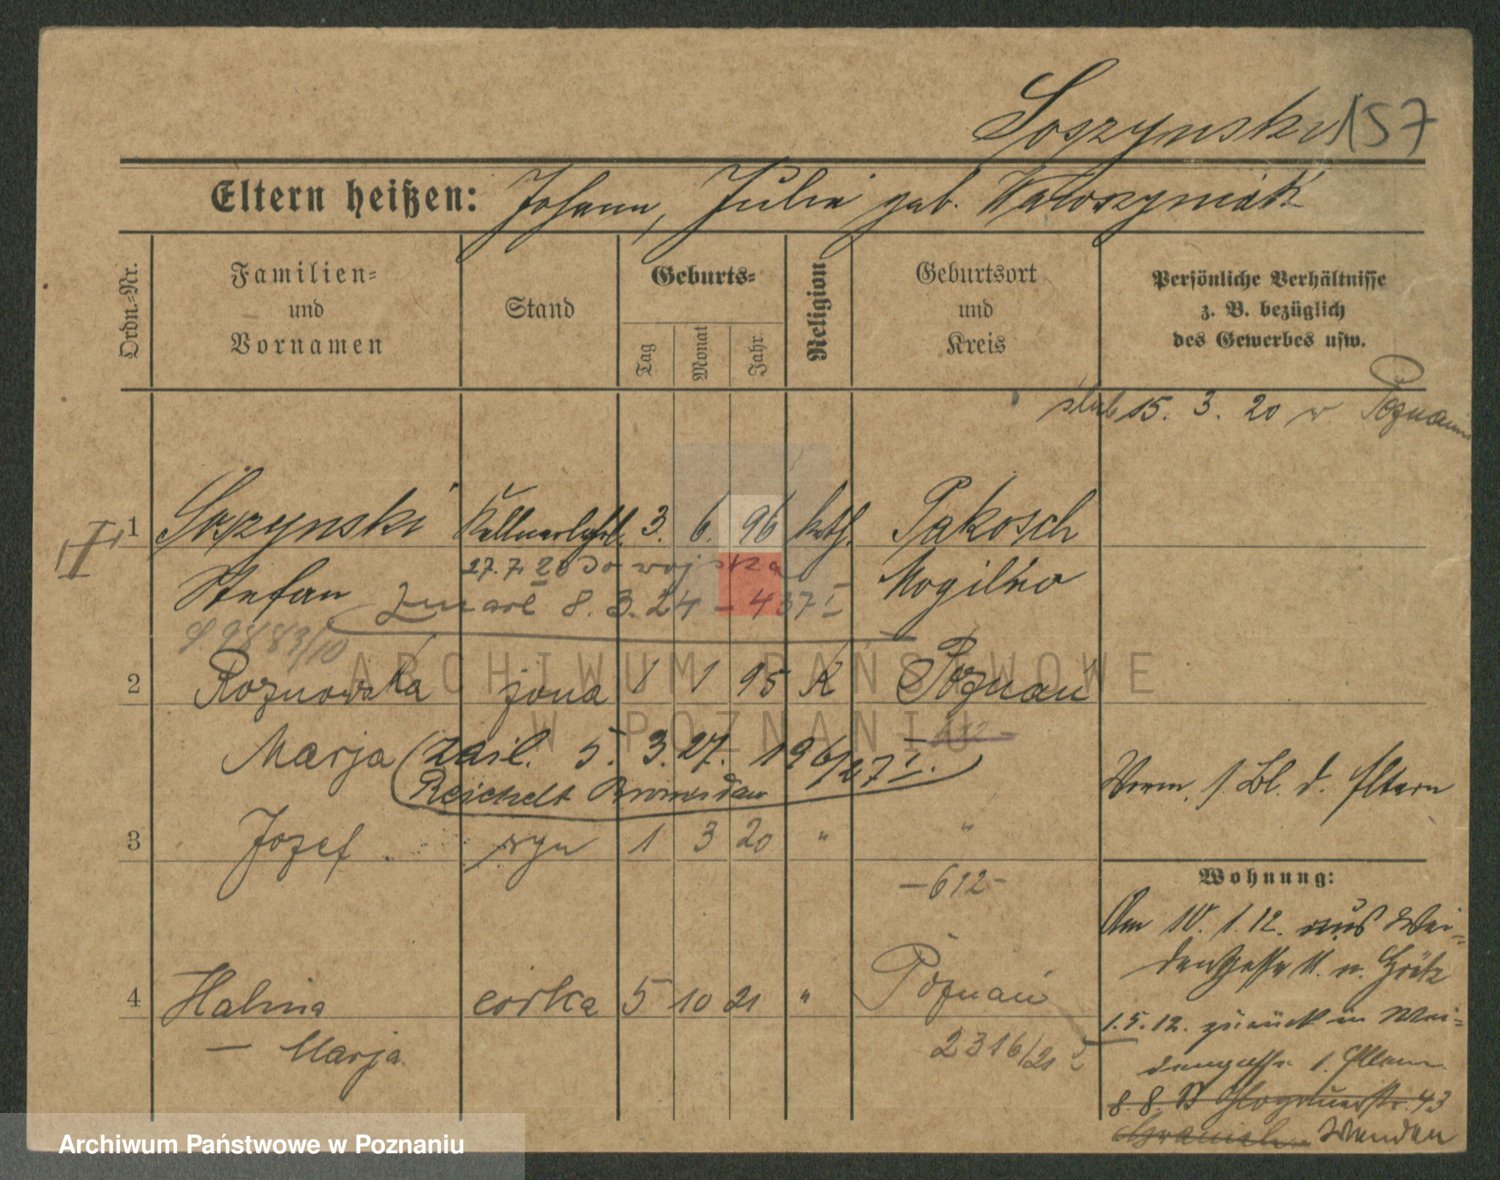 Soszynski 157
Eltern heißen: Johann, Julie geb. Waroszyniak
Ordn.-Nr.
Familien-
und
Vornamen
Stand
Geburts-
Tag
Monat
Jahr
Religion
Geburtsort
und
Kreis
Persönliche Verhältnisse
z. B. bezüglich
des Gewerbes usw.
ślub 15. 3. 20 w Poznaniu
II
1 Soszynski Kellnerlehrl. 3. 6. 96 kath. Pakosch
27.7.20 do wojska
Stefan Mogilno
zmarł 8.3.24 – 437 I
9883/10
2 Roznowska żona 1 1 95 K Poznań
Marja (zaśl. 5. 3. 27. 196/27 I.
Reichelt Bronisław
Verm. s. Bl. d. Eltern
3 Józef syn 1 3 20 " "
– 612 –
Wohnung:
Am 10. 1. 12. aus Wei-
dengasse 11. n. Grätz
4 Halina córka 5 10 21 " Poznań
1.5.12. zurück in Wei-
– Marja 2316/21
dengasse 1. Eltern
8. 8. 13 Glogauerstr. 43
Wenden
ARCHIWUM PAŃSTWOWE
W POZNANIU
Archiwum Państwowe w Poznaniu